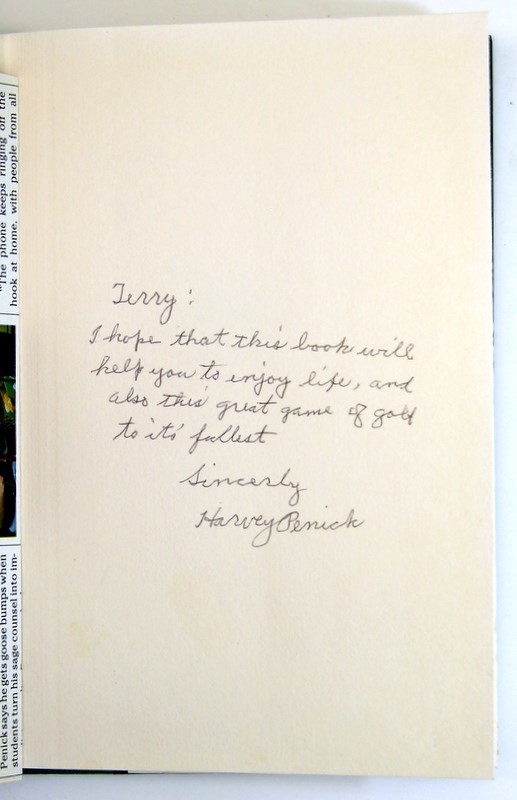 "The phone keeps ringing off the
hook at home, with people from all
Penick says he gets goose bumps when
students turn his sage counsel into im-
Terry:
I hope that this book will
help you to enjoy life, and
also this great game of golf
to it's fullest
Sincerly
Harvey Penick